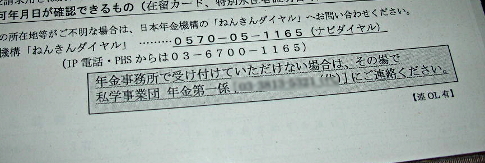 可年月日が確認できるもの（在留カード、特別永住者
の所在地等がご不明な場合は、日本年金機構の「ねんきんダイヤル」へお問い合わせください。
機構「ねんきんダイヤル」 ………０５７０-０５-１１６５（ナビダイヤル）
（IP 電話・PHSからは０３-６７００-１１６５）
年金事務所で受け付けていただけない場合は、その場で
私学事業団 年金第一係 (代)」にご連絡ください。
【済OL有】